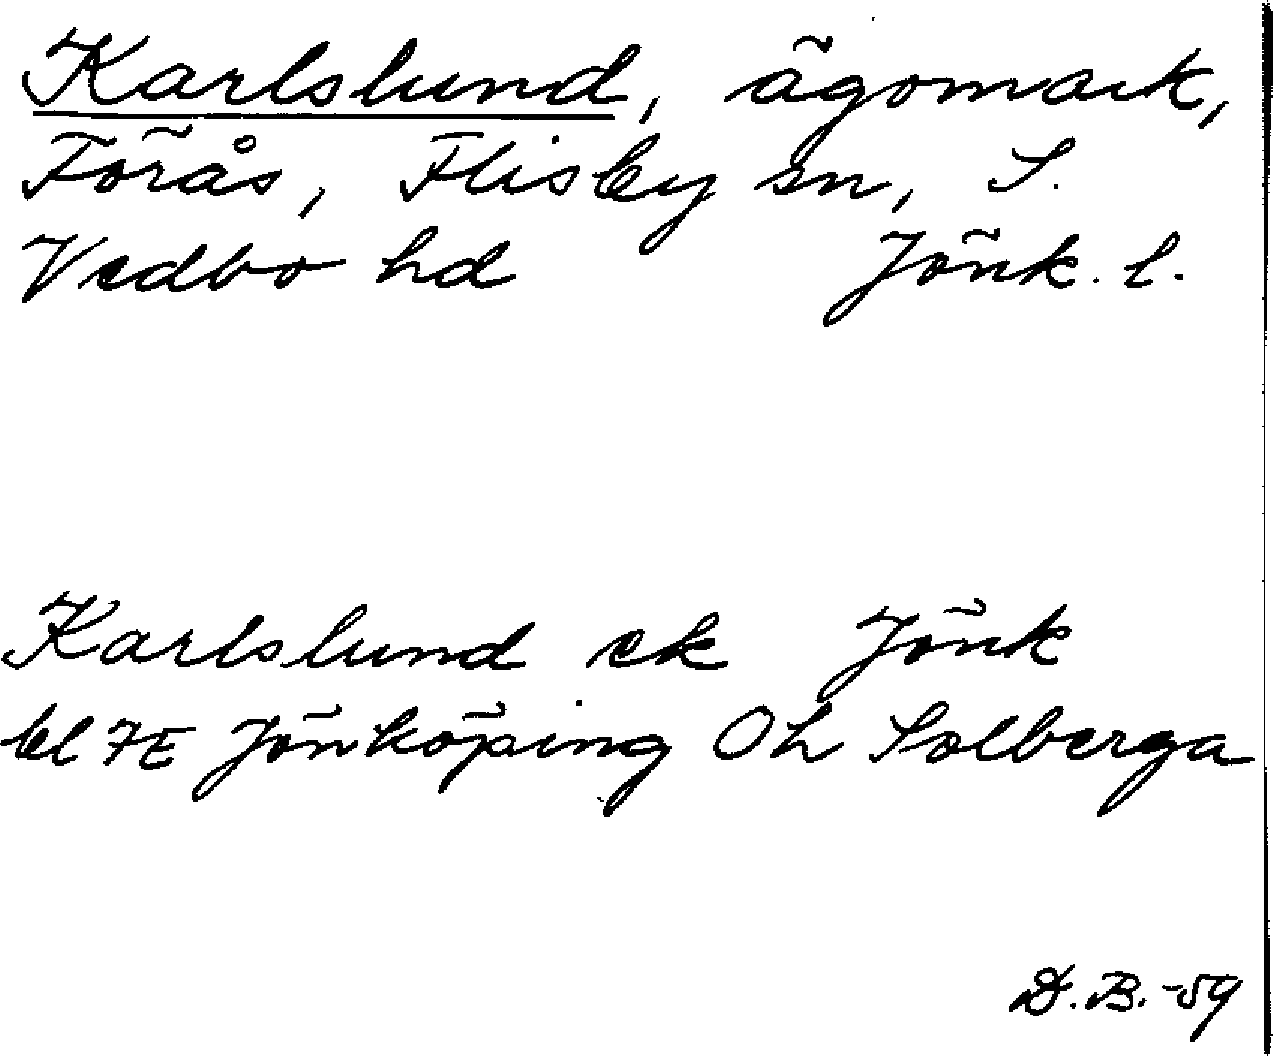 Karlslund, ägomark,
Föräs, Flisby sn, S.
Vedbo hd Jönk. l.
Karlslund ek Jönk
bl 7E Jönköping Oh Solberga
D. B. -59